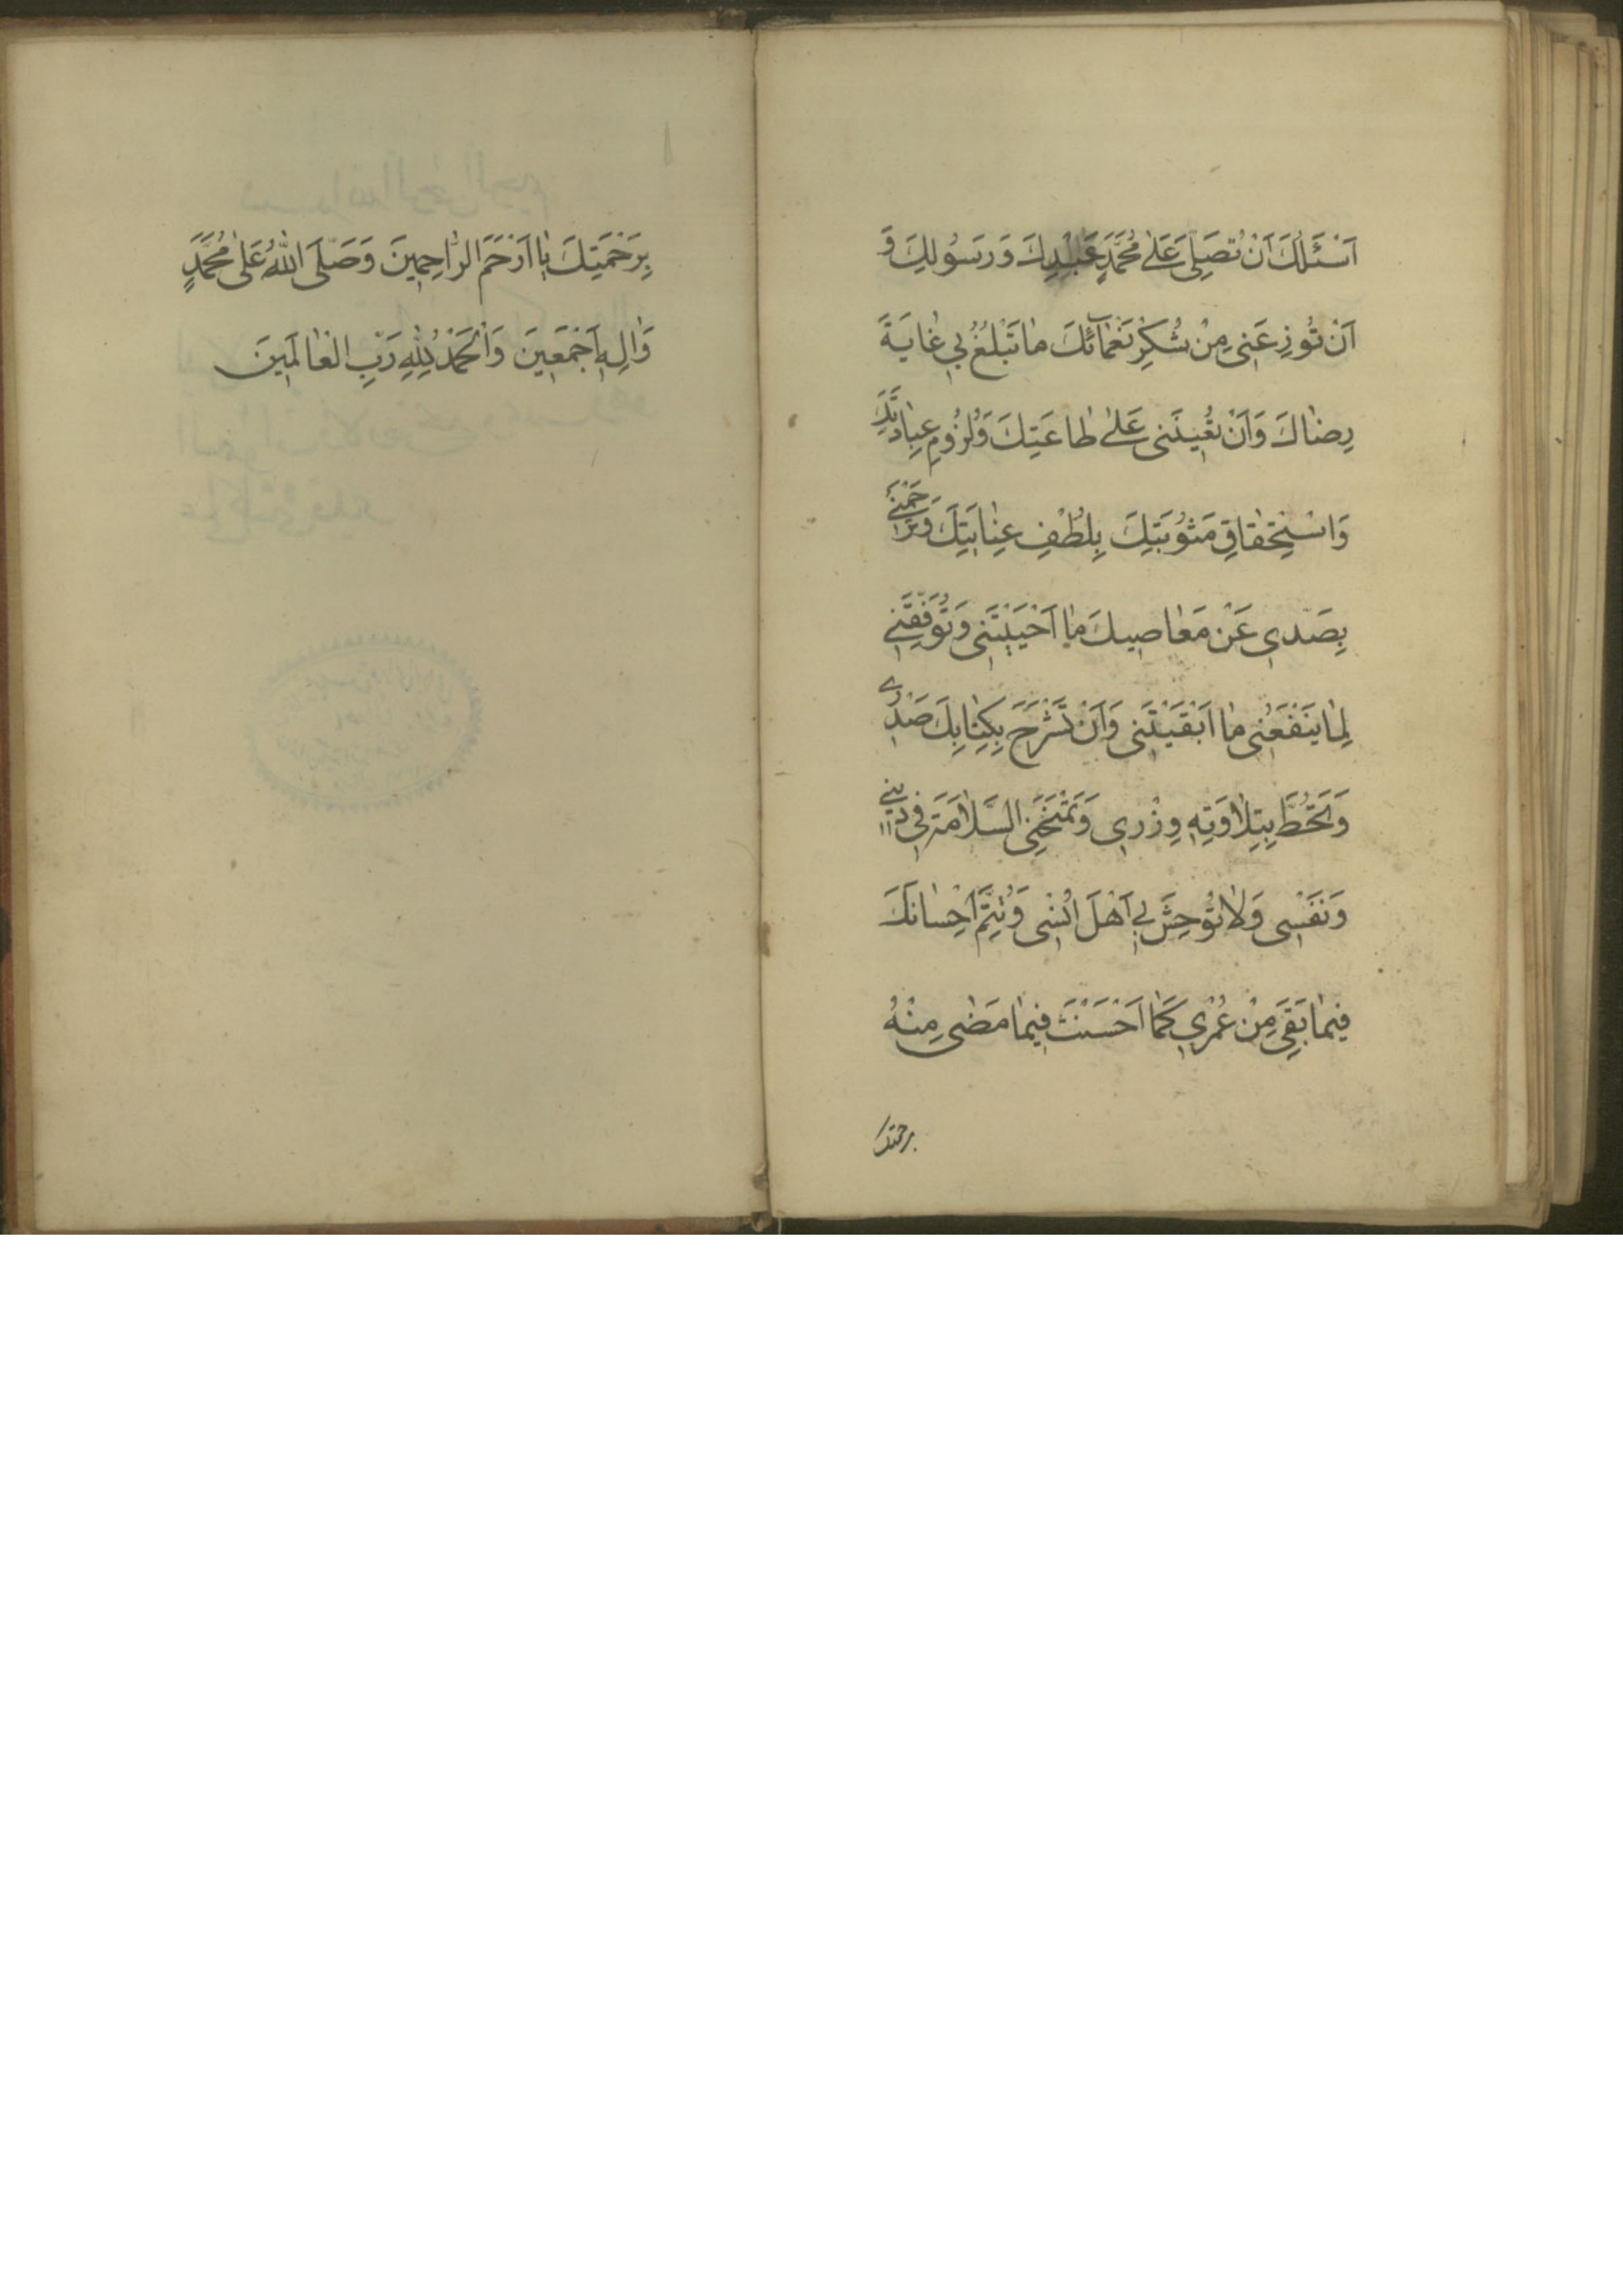 اَسْئَلُكَ اَنْ تُصَلِّيَ عَلىٰ مُحَمَّدٍ عَبْدِكَ وَرَسُولِكَ وَ
اَنْ تُوزِعَنى مِنْ شُكْرِ نَعْمآئِكَ مٰا تَبْلُغُ بي غٰايَةَ
رِضٰاكَ وَاَنْ تُعينَنى عَلىٰ طٰاعَتِكَ وَلُزُومِ عِبٰادَتِكَ
وَاسْتِحْقٰاقِ مَثُوبَتِكَ بِلُطْفِ عِنٰايَتِكَ وَتَرْحَمَنى
بِصَدّي عَنْ مَعٰاصيكَ مٰا اَحْيَيْتَنى وَتُوَفِّقَنى
لِمٰا يَنْفَعُنى مٰا اَبْقَيْتَنى وَاَنْ تَشْرَحَ بِكِتٰابِكَ صَدْرى
وَتَحُطَّ بِتِلاٰوَتِهِ وِزْرى وَتَمْنَحَنِى السَّلاٰمَةَ فى دينى
وَنَفْسى وَلاٰ تُوحِشَ بى اَهْلَ اُنْسى وَتُتِمَّ اِحْسٰانَكَ
فيمٰا بَقِيَ مِنْ عُمْرى كَمٰا اَحْسَنْتَ فيمٰا مَضٰى مِنْهُ
برحمتك
بِرَحْمَتِكَ يٰا اَرْحَمَ الرّٰاحِمينَ وَصَلَّى اللّٰهُ عَلىٰ مُحَمَّدٍ
وَاٰلِهِ اَجْمَعينَ وَالْحَمْدُ لِلّٰهِ رَبِّ الْعٰالَمينَ